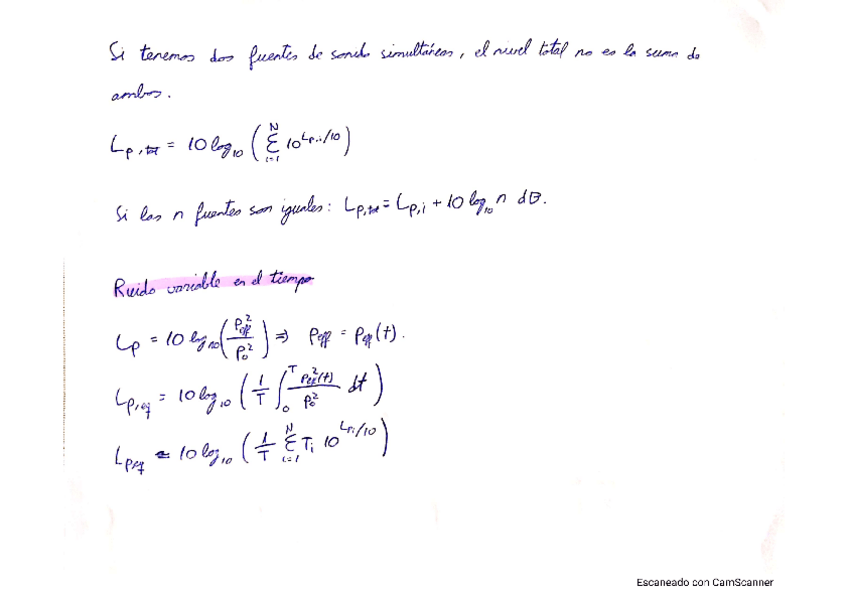 Si tenemos dos fuentes de sonido simultáneas, el nivel total no es la suma de
ambos.
Lp,tot = 10 log₁₀ ( Σ_{i=1}^{N} 10^{Lp,i/10} )
Si las n fuentes son iguales: Lp,tot = Lp,i + 10 log₁₀ n dB.
Ruido variable en el tiempo
Lp = 10 log₁₀ ( Peff² / Po² ) ⇒ Peff = Peff(t).
Lp,eq = 10 log₁₀ ( 1/T ∫₀ᵀ Peff²(t) / Po² dt )
Lp,eq = 10 log₁₀ ( 1/T Σ_{i=1}^{N} Ti 10^{Lpi/10} )
Escaneado con CamScanner